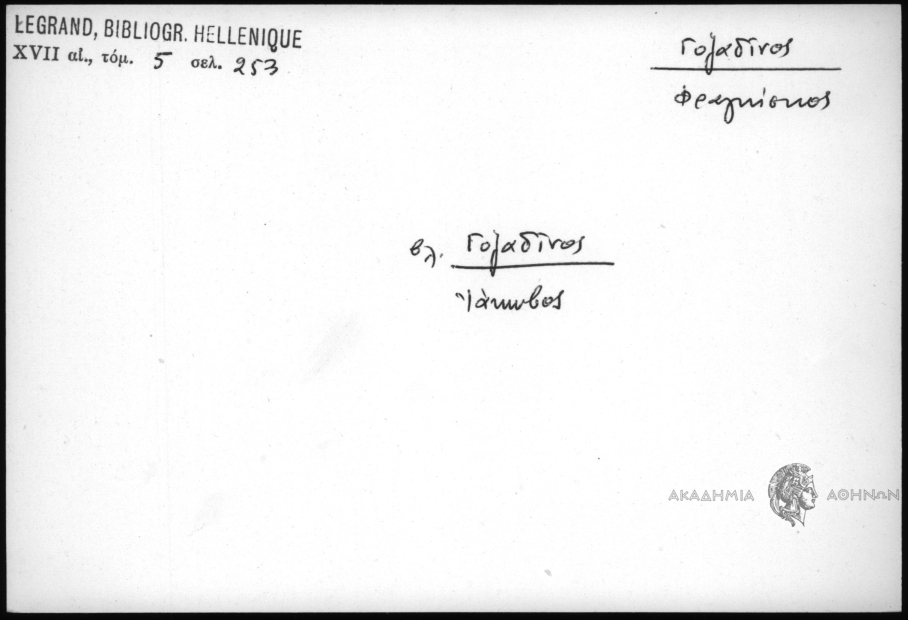 LEGRAND, BIBLIOGR. HELLENIQUE
XVII αἰ., τόμ. 5 σελ. 253
Γοζαδῖνος
Φραγκίσκος
βλ. Γοζαδῖνος
Ἰάκωβος
ΑΚΑΔΗΜΙΑ ΑΘΗΝΩΝ